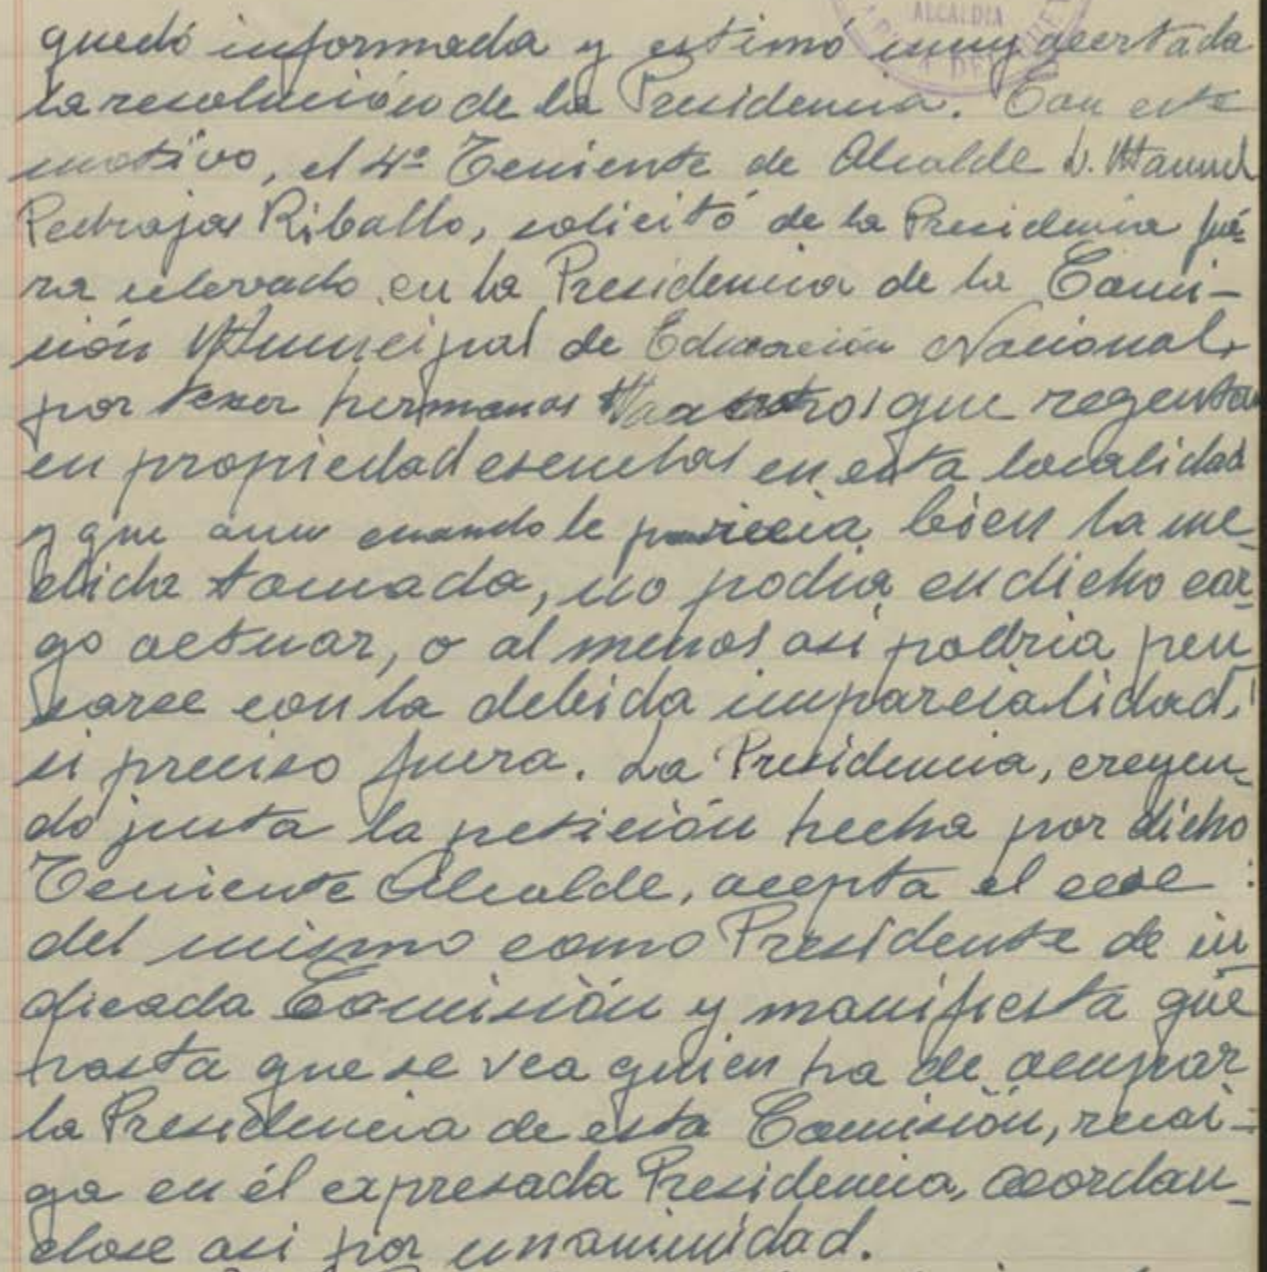 ALCALDIA
quedó informada y estimó muy acertada
la resolución de la Presidencia. Con este
motivo, el 4º Teniente de Alcalde D. Manuel
Pedrajas Riballo, solicitó de la Presidencia fué-
ra relevado en la Presidencia de la Comi-
sión Municipal de Educación Nacional,
por tener hermanos Maestros que regentan
en propiedad escuelas en esta localidad
y que aun cuando le parecia bien la me-
dida tomada, no podia en dicho car-
go actuar, o al menos asi podria pen
sarse con la debida imparcialidad,
si preciso fuera. La Presidencia, creyen-
do justa la petición hecha por dicho
Teniente Alcalde, acepta el cese
del mismo como Presidente de in
dicada Comisión y manifiesta que
hasta que se vea quien ha de ocupar
la Presidencia de esta Comisión, recai-
ga en él expresada Presidencia, acordan-
dose asi por unanimidad.